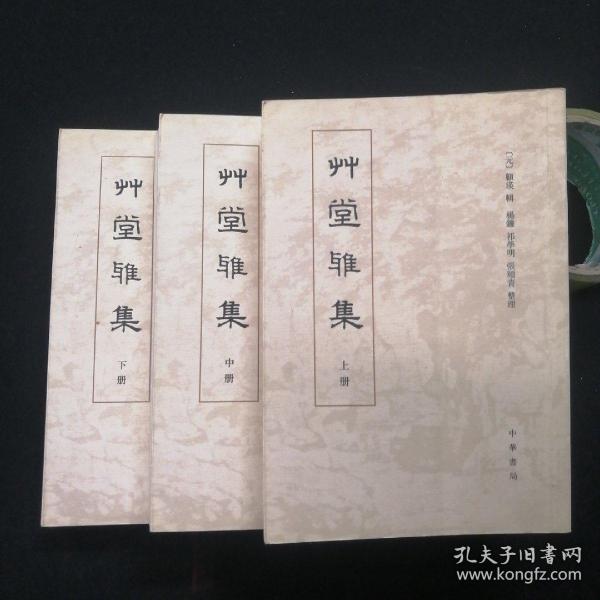 艸堂雅集
下册
艸堂雅集
中册
艸堂雅集
上册
〔元〕顧瑛 輯 楊鐮 祁學明 張頤青 整理
中華書局
孔夫子旧书网
www.kongfz.com